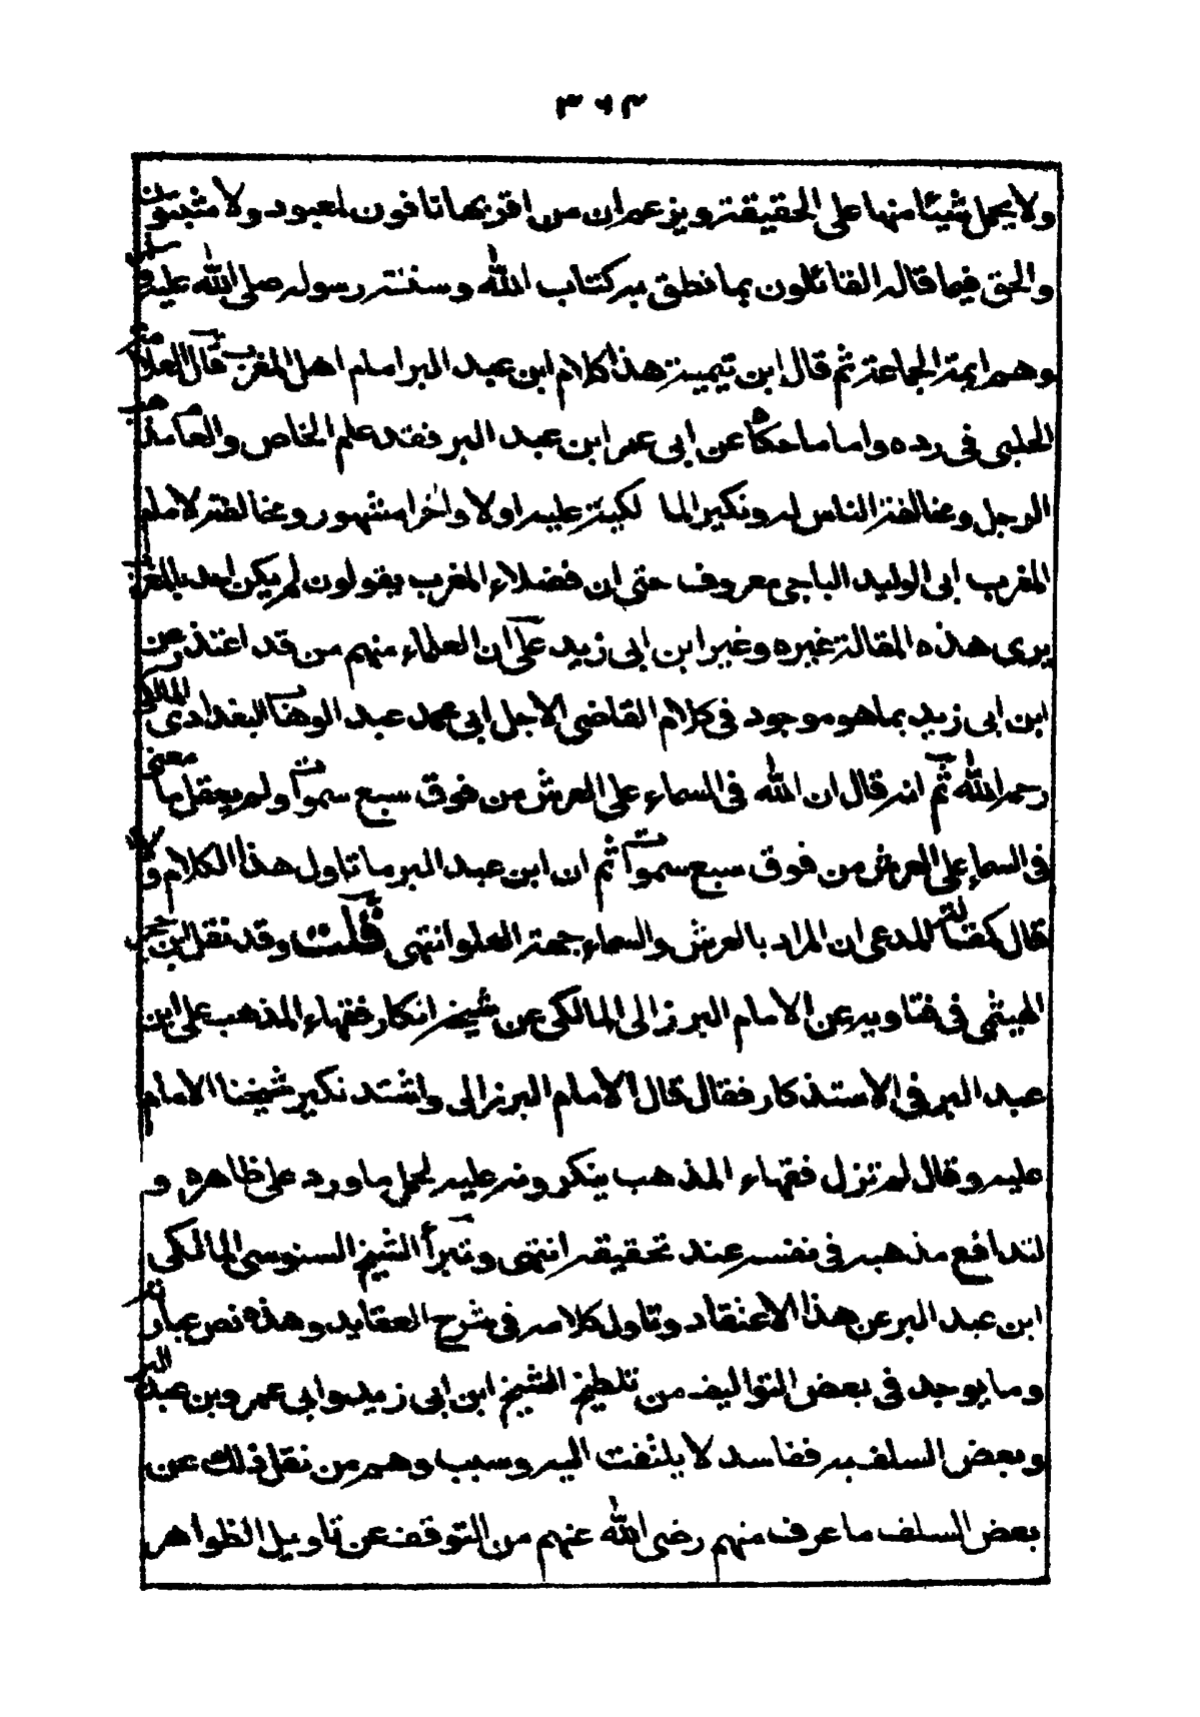 ٣٦٣
ولا يحمل شيئا منها على الحقيقة ويزعم ان من اقر بها نافون لمعبود ولا مثبتون
والحق فيما قاله القائلون بما نطق به كتاب الله وسنة رسوله صلى الله عليه وسلم
وهم ايمة الجماعة ثم قال ابن تيمية هذا كلام ابن عبد البر امام اهل المغرب قال العلامة
الحلبى فى رده واما ما حكاه عن ابى عمر ابن عبد البر فقد علم الخاص والعام مذهب
الرجل ومخالفة الناس له ونكير المالكية عليه اولا واخرا مشهور ومخالفته لامام
المغرب ابى الوليد الباجى معروف حتى ان فضلاء المغرب يقولون لم يكن احد بالمغرب
يرى هذه المقالة غيره وغير ابن ابى زيد على ان العلماء منهم من قد اعتذر عن
ابن ابى زيد بما هو موجود فى كلام القاضى الاجل ابى محمد عبد الوهاب البغدادى المالكى
رحمه الله ثم انه قال ان الله فى السماء على العرش من فوق سبع سموات ولم يعقل ما معنى
فى السماء على العرش من فوق سبع سموات ثم ان ابن عبد البر ما تاول هذا الكلام ولا
قال كمقالة المدعى ان المراد بالعرش والسماء جهة العلو انتهى قلت وقد نقل ابن حجر
الهيثمى فى فتاويه عن الامام البرزالى المالكى عن شيخه انكار فقهاء المذهب على ابن
عبد البر فى الاستذكار فقال قال الامام البرزالى واشتد نكير شيخنا الامام
عليه وقال لم تزل فقهاء المذهب ينكرونه عليه لحمل ما ورد على ظاهره و
لتدافع مذهبه فى نفسه عند تحقيقه انتهى وتبرأ الشيخ السنوسى المالكى
ابن عبد البر عن هذا الاعتقاد وتاول كلامه فى شرح العقايد وهذه نص عبارته
وما يوجد فى بعض التواليف من تلطيخ الشيخ ابن ابى زيد وابى عمرو بن عبد البر
وبعض السلف به ففاسد لا يلتفت اليه وسبب وهم من نقل ذلك عن
بعض السلف ما عرف منهم رضى الله عنهم من التوقف عن تاويل الظواهر